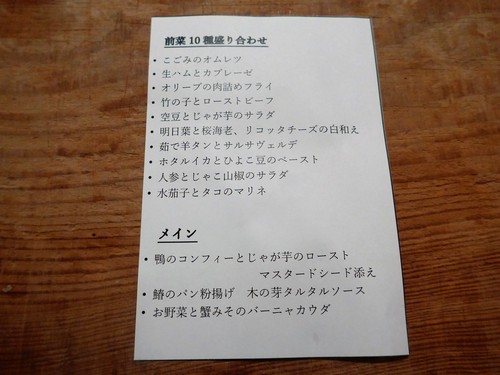 前菜10種盛り合わせ
・こごみのオムレツ
・生ハムとカプレーゼ
・オリーブの肉詰めフライ
・竹の子とローストビーフ
・空豆とじゃが芋のサラダ
・明日葉と桜海老、リコッタチーズの白和え
・茹で羊タンとサルサヴェルデ
・ホタルイカとひよこ豆のペースト
・人参とじゃこ山椒のサラダ
・水茄子とタコのマリネ
メイン
・鴨のコンフィーとじゃが芋のロースト
マスタードシード添え
・鰆のパン粉揚げ　木の芽タルタルソース
・お野菜と蟹みそのバーニャカウダ